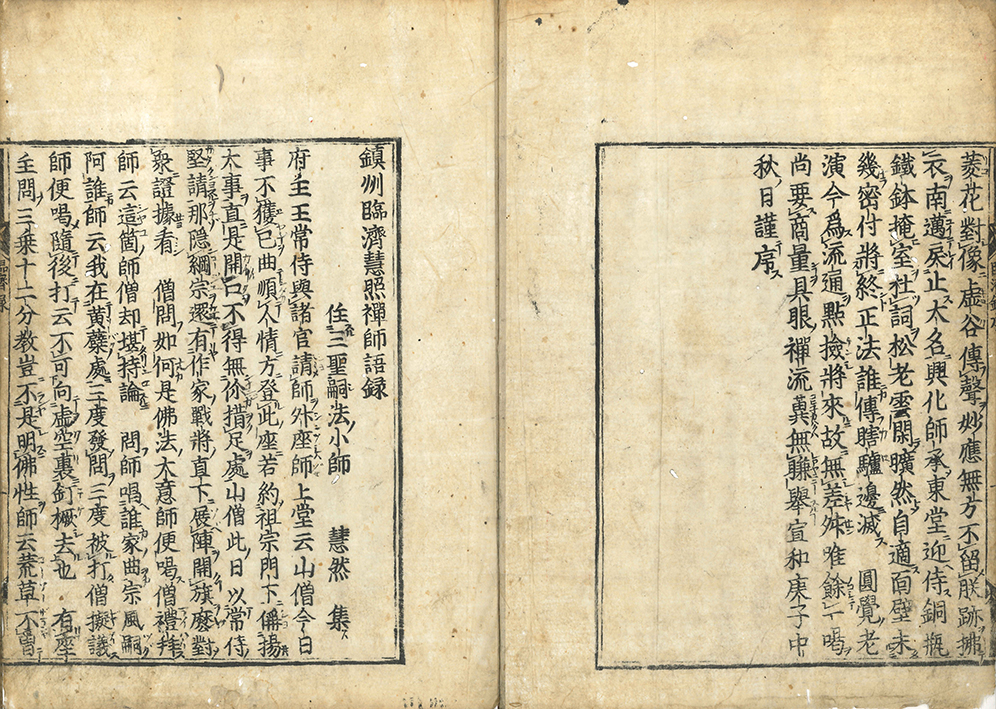 菱花對像虛谷傳聲妙應無方不留朕跡拂
衣南邁戾止大名興化師承東堂迎侍銅瓶
鐵鉢掩室杜詞松老雲閑曠然自適面壁未
幾密付將終正法誰傳瞎驢邊滅　圓覺老
演今爲流通點撿將來故無差舛唯餘一喝
尚要商量具眼禪流冀無賺舉宣和庚子中
秋日謹序
鎮州臨濟慧照禪師語録
住三聖嗣法小師　慧然　集
府主王常侍與諸官請師外座師上堂云山僧今日
事不獲已曲順人情方登此座若約祖宗門下偁揚
大事直是開口不得無你措足處山僧此日以常侍
堅請那隠綱宗還有作家戰將直下展陣開旗麽對
衆證據看　僧問如何是佛法大意師便喝僧禮拜
師云這箇師僧却堪持論　問師唱誰家曲宗風嗣
阿誰師云我在黄蘗處三度發問三度被打僧擬議
師便喝隨後打云不可向虛空裏釘橛去也　有座
主問三乗十二分教豈不是明佛性師云荒草不曽